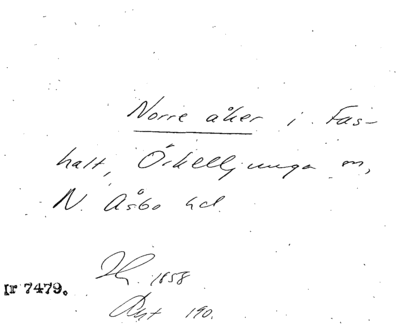 Norre åker i Fas-
halt, Örkelljunga sn,
N. Åsbo hd.
1858
nr 7479.
190.